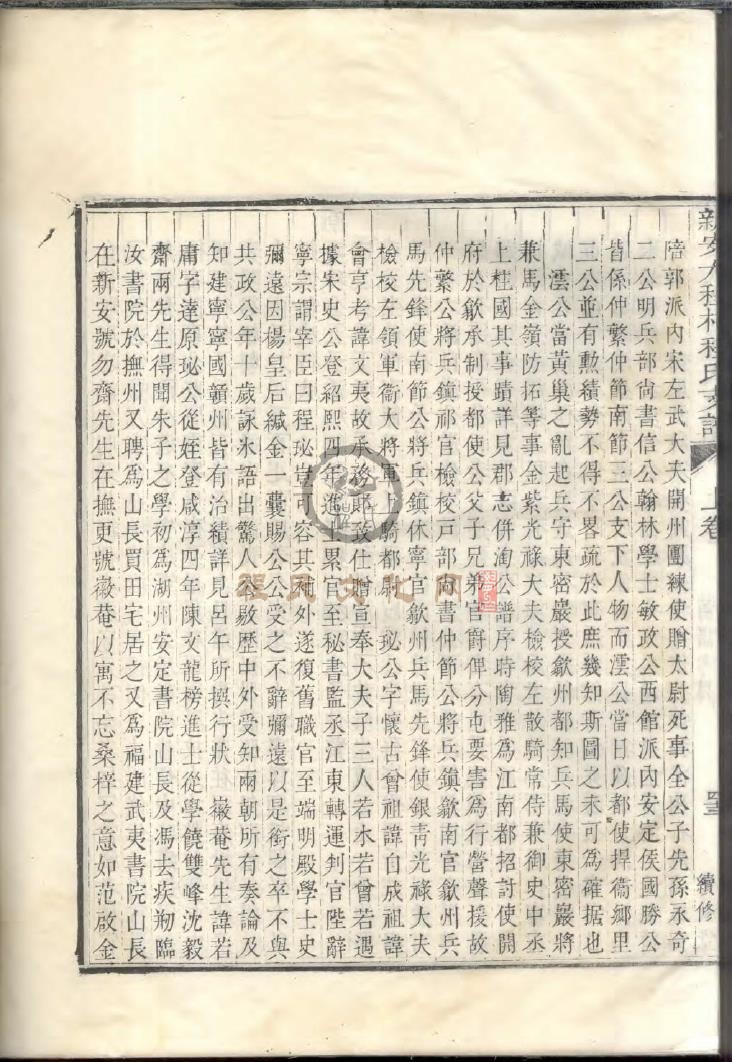 新安大程村程氏支譜 上卷 四三 續修
陪郭派內宋左武大夫開州團練使贈太尉死事全公子先孫永奇
二公明兵部尚書信公翰林學士敏政公西館派內安定侯國勝公
皆係仲繁仲節南節三公支下人物而澐公當日以都使捍衞鄉里
三公並有勲績勢不得不畧疏於此庶幾知斯圖之未可爲確据也
澐公當黃巢之亂起兵守東密巖授歙州都知兵馬使東密巖將
兼馬金嶺防拓等事金紫光祿大夫檢校左散騎常侍兼御史中丞
上柱國其事蹟詳見郡志併淘公譜序時陶雅爲江南都招討使開
府於歙承制授都使公父子兄弟官爵俾分屯要害爲行營聲援故
仲繁公將兵鎮祁官檢校戸部尚書仲節公將兵鎮歙南官歙州兵
馬先鋒使南節公將兵鎮休寧官歙州兵馬先鋒使銀青光祿大夫
檢校左領軍衞大將軍上騎都尉 珌公字懷古曾祖諱自成祖諱
會亨考諱文夷故承務郎致仕贈宣奉大夫子三人若水若曾若遇
據宋史公登紹熙四年進士累官至秘書監丞江東轉運判官陛辭
寧宗謂宰臣曰程珌豈可容其補外遂復舊職官至端明殿學士史
彌遠因楊皇后緘金一囊賜公公受之不辭彌遠以是銜之卒不與
共政公年十歲詠氷語出驚人公敭歷中外受知兩朝所有奏論及
知建寧寧國贛州皆有治績詳見呂午所撰行狀 徽菴先生諱若
庸字達原珌公從姪登咸淳四年陳文龍榜進士從學饒雙峰沈毅
齋兩先生得聞朱子之學初爲湖州安定書院山長及馮去疾刱臨
汝書院於撫州又聘爲山長買田宅居之又爲福建武夷書院山長
在新安號勿齋先生在撫更號徽菴以寓不忘桑梓之意如范啟金
器民文化网